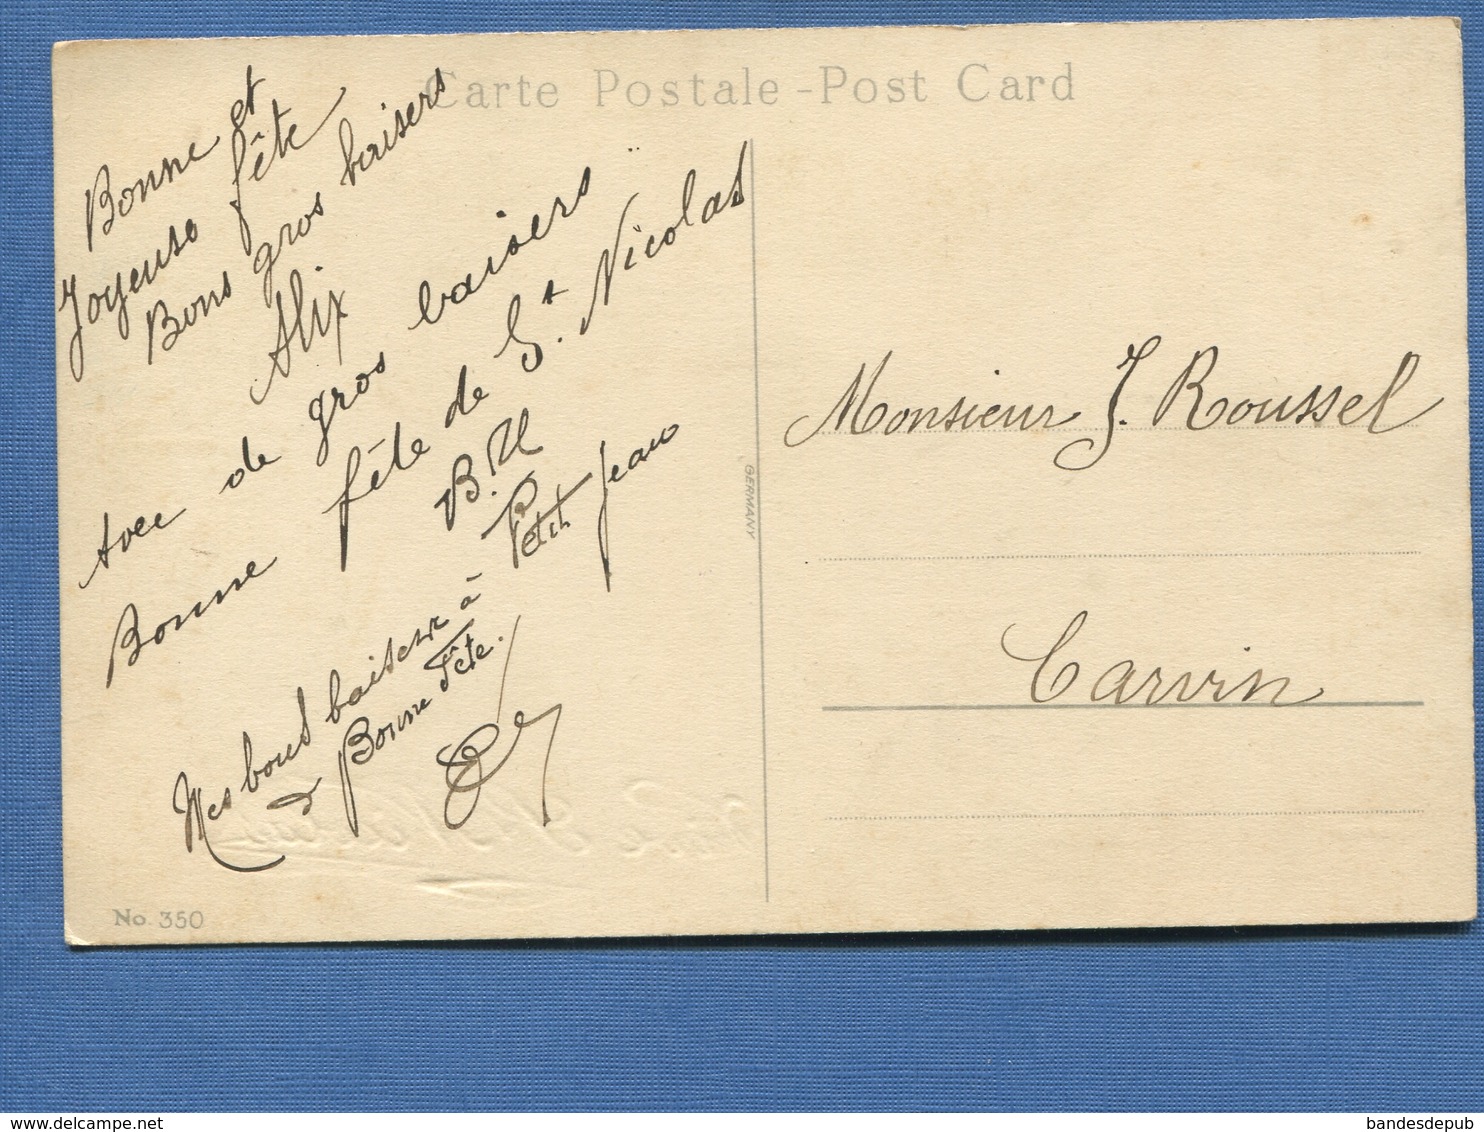 Carte Postale - Post Card
Bonne et
Joyeuse fête
Bons gros baisers
Alix
Avec de gros baisers
Bonne fête de St. Nicolas
B. U
Mes bons baisers à Petit Jean
& Bonne Fête.
Monsieur J. Roussel
Carvin
GERMANY
No. 350
bandesdepub